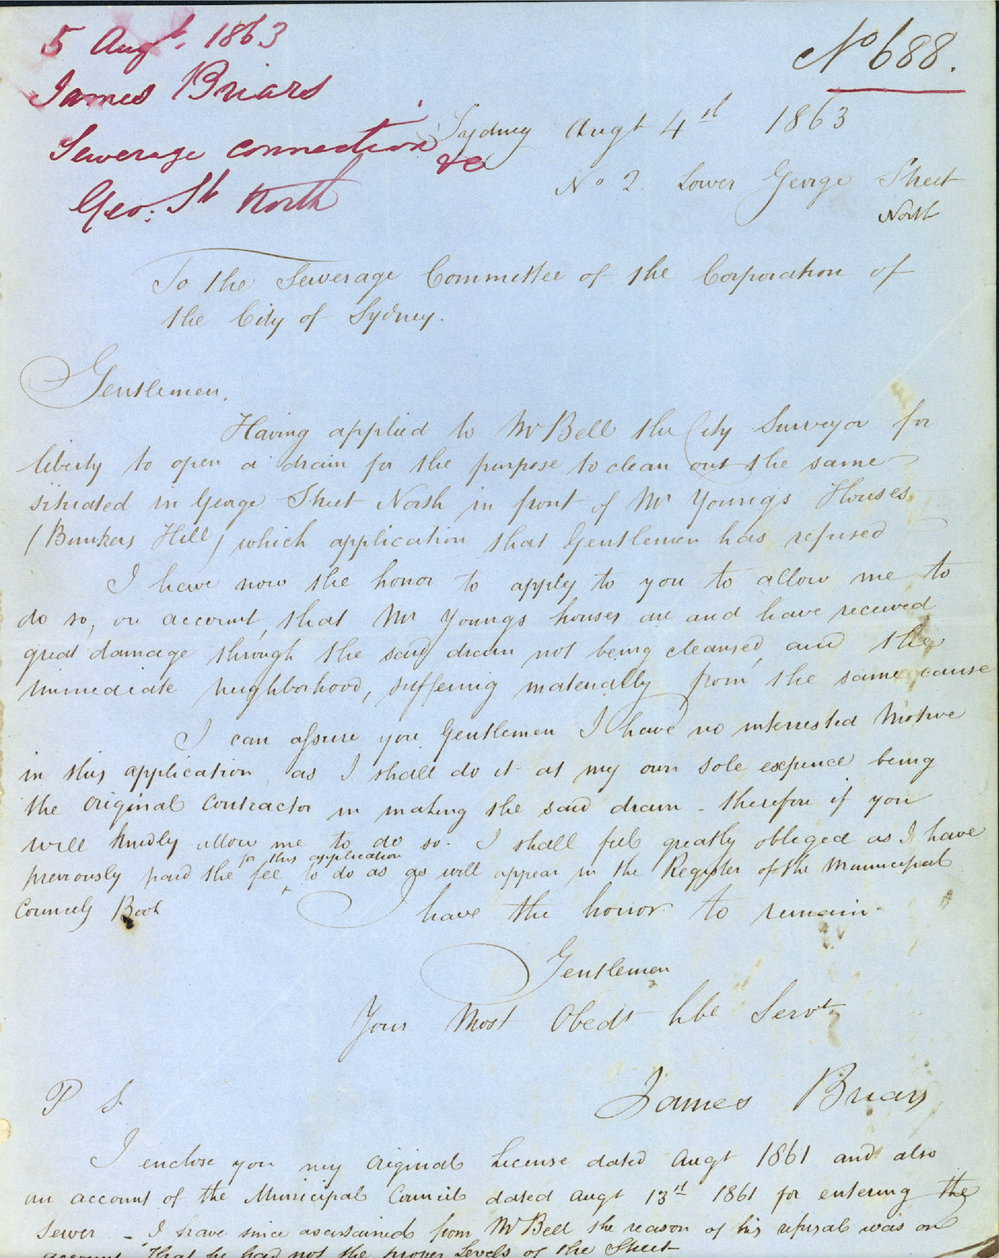 5 Augt. 1863
James Briars
Sewerage connection &c
Geo. St. North
No 688.
Sydney Augt 4th 1863
No 2. Lower George Street
North
To the Sewerage Committee of the Corporation of
the City of Sydney.
Gentlemen,
Having applied to Mr Bell the City Surveyor for
liberty to open a drain for the purpose to clean out the same
situated in George Street North in front of Mr Youngs Houses
(Bunkers Hill) which application that Gentlemen has refused
I have now the honor to apply to you to allow me to
do so, on account, that Mr Youngs houses are and have received
great damage through the said drain not being cleansed, and the
immediate neighborhood, suffering materially from the same cause
I can assure you Gentlemen I have no interrested Motive
in this application, as I shall do it at my own sole expence being
the original Contractor in making the said drain - therefore if you
will kindly allow me to do so. I shall feel greatly obliged as I have
previously paid the fee for this application to do as as will appear in the Register of the Municipal
Councils Book
I have the honor to remain
Gentlemen
Your Most Obedt hble Servt
James Briars
P S
I enclose you my original License dated Augt 1861 and also
an account of the Municipal Council dated Augt 13th 1861 for entering the
Sewer - I have since ascertained from Mr Bell the reason of his refusal was on
account that he had not the proper Levels of the Street